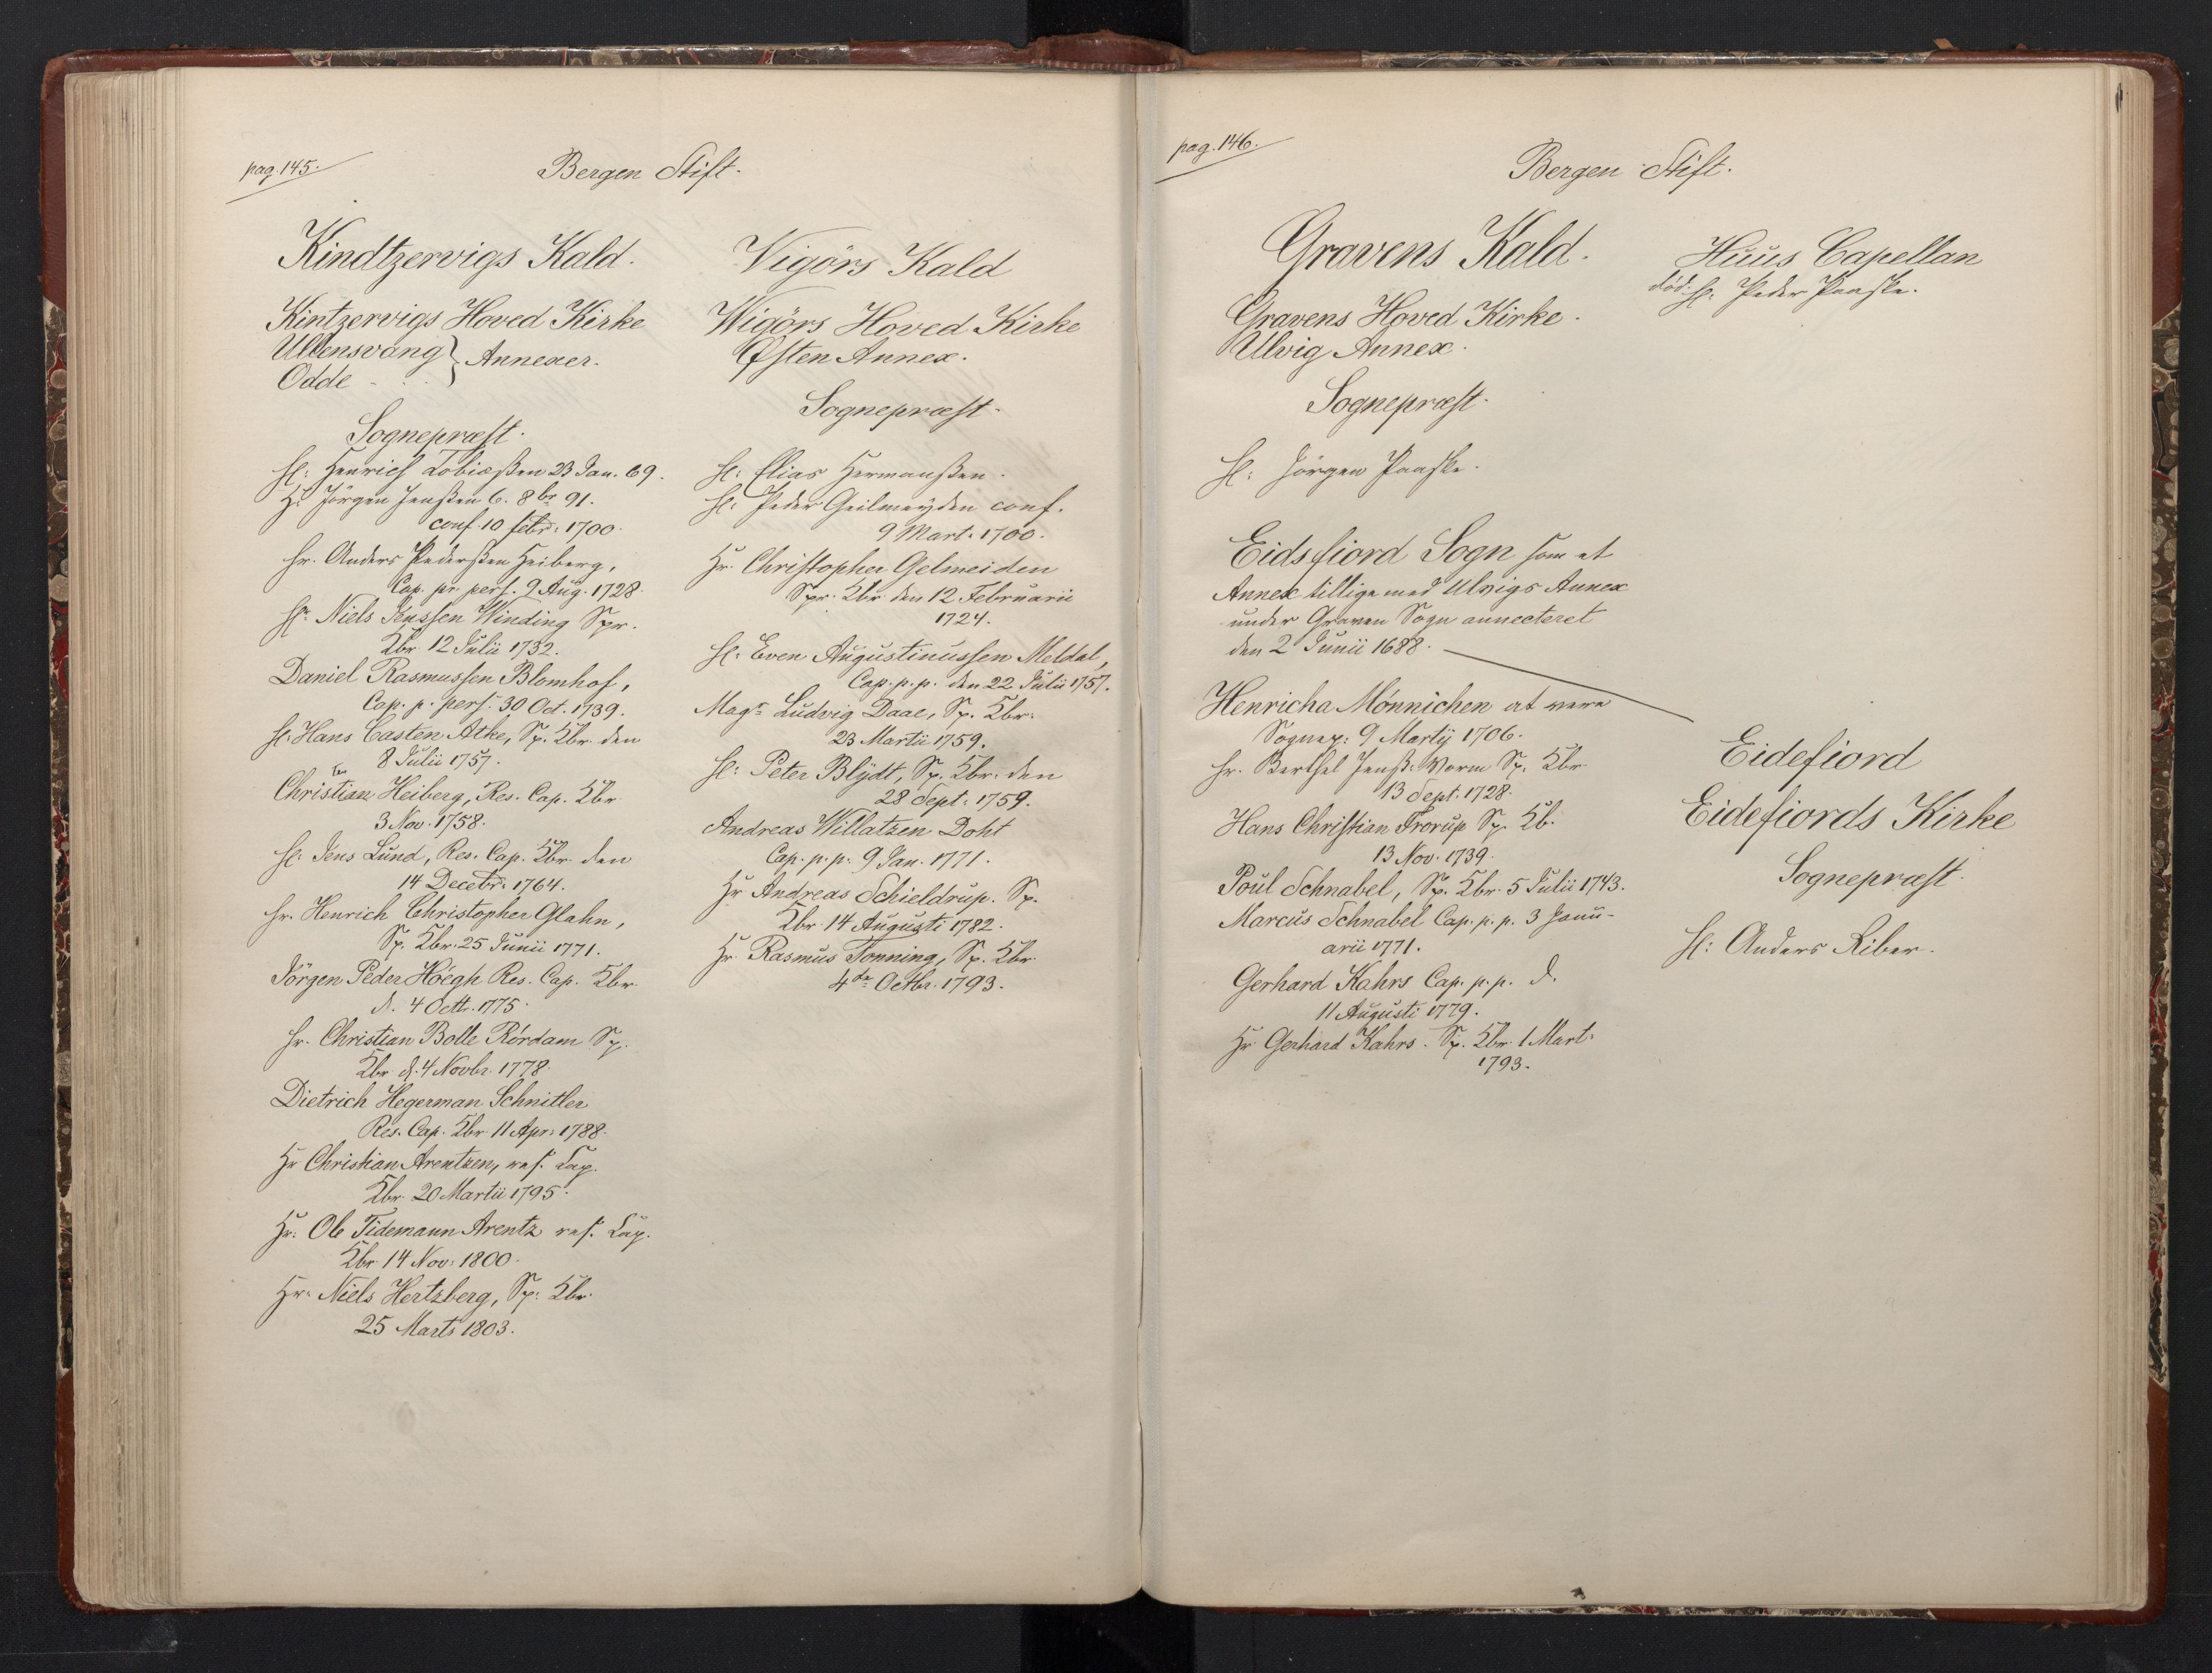 pag. 145.
Bergen Stift.
Kindtzervigs Kald.
Kintzervigs Hoved Kirke
Ullensvang } Annexer.
Odde
Sognepræst.
H: Henrich Tobiæßen 23 Jan. 69.
H: Jörgen Jenßen 6. 8br 91.
conf. 10 febr: 1700.
Hr. Anders Pederßen Heiberg,
Cap. pr pers. 9 Aug. 1728.
Hr. Niels Jenssen Winding Spr.
Kbr. 12 Julii 1732.
Daniel Rasmussen Blomhof,
Cap. p. pers. 30 Oct. 1739.
H: Hans Casten Atke, Sp. Kbr. den
8 Julii 1757.
Christian Heiberg, Res. Cap. Kbr.
3 Nov. 1758.
H: Jens Lund, Res. Cap. Kbr. den
14 Decebr. 1764.
Hr. Henrich Christopher Glahn,
Sp. Kbr. 25 Junii 1771.
Jörgen Peder Höegh Res. Cap. Kbr.
d. 4 Octr. 1775.
Hr. Christian Bolle Rördam Sp.
Kbr. d. 4 Novbr. 1778.
Dietrich Hegerman Schnitler
Res. Cap. Kbr 11 Apr: 1788.
Hr Christian Arentzen, res. Cap.
Kbr. 20 Martii 1795.
Hr: Ole Tidemann Arentz res. Cap.
Kbr 14 Nov: 1800.
Hr. Niels Hertzberg, Sp: Kbr.
25 Marts 1803.
Vigörs Kald
Wigörs Hoved Kirke
Østen Annex.
Sognepræst.
H: Elias Hermanßen.
H: Peder Geilmeyden conf.
9 Mart. 1700.
Hr. Christopher Gelmeiden
Spr. Kbr. den 12 Februarii
1724.
H: Even Augustinussen Meldal,
Cap. p. p. den 22 Julii 1757.
Magr Ludvig Daae, Sp. Kbr:
23 Martii 1759.
H: Peter Blÿdt, Sp. Kbr. den
28 Sept: 1759.
Andreas Willatzen Doht
Cap. p. p. 9 Jan. 1771.
Hr Andreas Schieldrup. Sp.
Kbr. 14 Augusti 1782.
Hr. Rasmus Tonning, Sp. Kbr.
4de Octbr. 1793.
pag. 146.
Bergen Stift.
Gravens Kald.
Gravens Hoved Kirke.
Ulvig Annex.
Sognepræst.
H: Jörgen Paaske.
Eidsfiord Sogn som et
Annex tillige med Ulvigs Annex
under Graven Sogn annecteret
den 2 Junii 1688.
Henricha Mönnichen at være
Sognep: 9 Martij 1706.
Hr. Berthel Jenß: Worm Sp. Kbr.
13 Sept. 1728.
Hans Christian Trorup Sp. Kb.
13 Nov. 1739.
Poul Schnabel, Sp. Kbr. 5 Julii 1743.
Marcus Schnabel Cap. p. p. 3 Janu-
arii 1771.
Gerhard Kahrs Cap. p. p. d.
11 Augusti 1779.
Hr Gerhard Kahrs. Sp. Kbr. 1 Mart:
1793.
Huus Capellan
död: H: Peder Paaske.
Eidefiord
Eidefiords Kirke
Sognepræst.
H: Anders Riber.